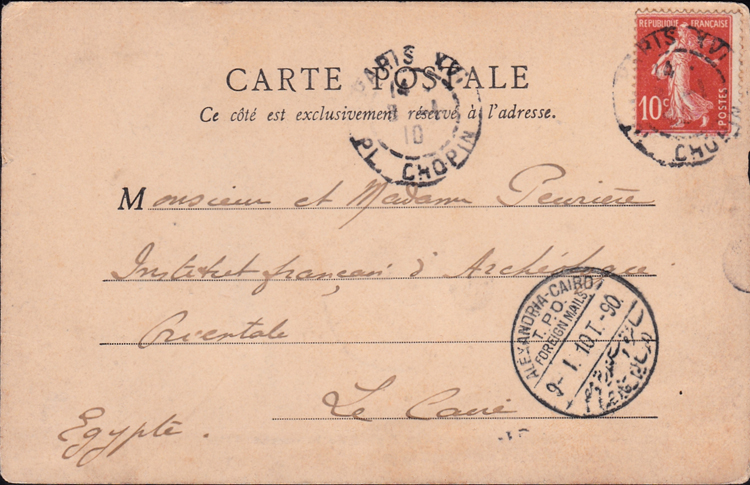 RÉPUBLIQUE FRANÇAISE
10c
POSTES
PARIS XVI
10
PL. CHOPIN
PARIS XVI
PL. CHOPIN
CARTE POSTALE
Ce côté est exclusivement réservé à l'adresse.
Monsieur et Madame
Institut français d'Archéologie
Orientale
Le Caire
Egypte.
ALEXANDRIA-CAIRO
T.P.O.
FOREIGN MAILS
9- I. 10 T.-90.